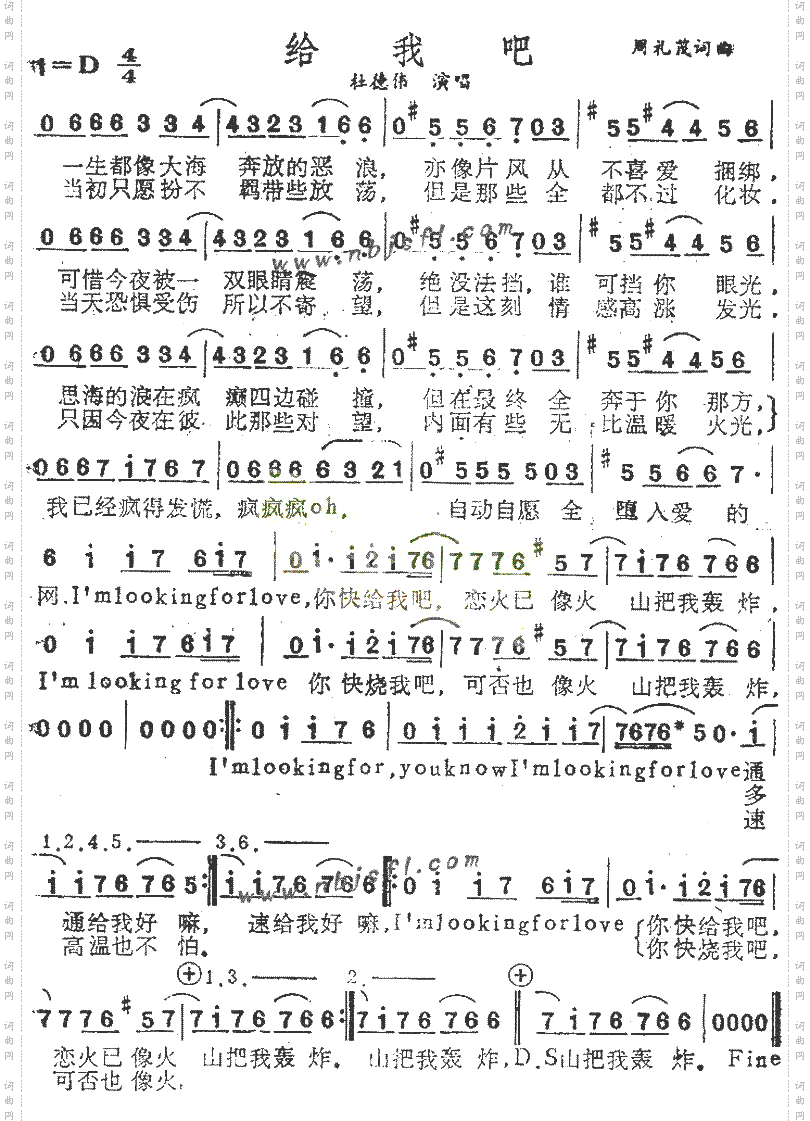 给我吧
周礼茂词曲
1=D 4/4
杜德伟 演唱
0 6 6 6 3 3 3 4 | 4 3 2 3 3 1 6 6 | 0 #5 5 6 7 0 3 | #5 5 #4 4 5 6 |
一生都像大海 奔放的恶 浪， 亦像片风 从 不喜 爱 捆绑，
当初只愿扮不 羁带些放 荡， 但是那些 全 都不 过 化妆，
0 6 6 6 3 3 3 4 | 4 3 2 3 3 1 6 6 | 0 #5 5 6 7 0 3 | #5 5 #4 4 5 6 |
www.nbjsfl.com
可惜今夜被一 双眼睛震 荡， 绝没法挡，谁 可挡 你 眼光，
当天恐惧受伤 所以不寄 望， 但是这刻 情 感高 涨 发光，
0 6 6 6 3 3 3 4 | 4 3 2 3 3 1 6 6 | 0 #5 5 6 7 0 3 | #5 5 #4 4 5 6 |
思海的浪在疯 癫四边碰 撞， 但在最终 全 奔于 你 那方，
只因今夜在彼 此那些对 望， 内面有些 无 比温 暖 火光，
0 6 6 7 i 7 6 7 | 0 6 6 6 6 3 2 1 | 0 #5 5 5 5 0 3 | #5 5 6 6 7 ·
我已经疯得发慌，疯疯疯oh． 自动自愿 全 堕入爱 的
6 i i 7 6 i 7 | 0 i· i 2 i 7 6 | 7 7 7 6 #5 7 | 7 i 7 6 7 6 6 |
网．I'm looking for love，你快给我吧， 恋火已 像火 山把我轰 炸，
0 i i 7 6 i 7 | 0 i· i 2 i 7 6 | 7 7 7 6 #5 7 | 7 i 7 6 7 6 6 |
I'm looking for love 你快烧我吧，可否也 像火 山把我轰 炸，
0 0 0 0 | 0 0 0 0 :‖: 0 i i 7 6 | 0 i i i 2 i i 7 | 7 6 7 6 * 5 0 · i |
I'm looking for, you know I'm looking for love 通
多
速
1.2.4.5. 3.6.
i i 7 6 7 6 5 :‖ i i 7 6 7 6 6 :‖: 0 i i 7 6 i 7 | 0 i· i 2 i 7 6 |
www.nbjsfl.com
通给我好 嘛， 速给我好 嘛，I'm looking for love 你快给我吧，
高温也不 怕。 你快烧我吧，
1,3. 2.
7 7 7 6 #5 7 | 7 i 7 6 7 6 6 :‖ 7 i 7 6 7 6 6 ‖ 7 i 7 6 7 6 6 | 0 0 0 0 ‖
恋火已 像火 山把我轰 炸。 山把我轰 炸，D.S山把我轰 炸。 Fine
可否也 像火．
词曲网